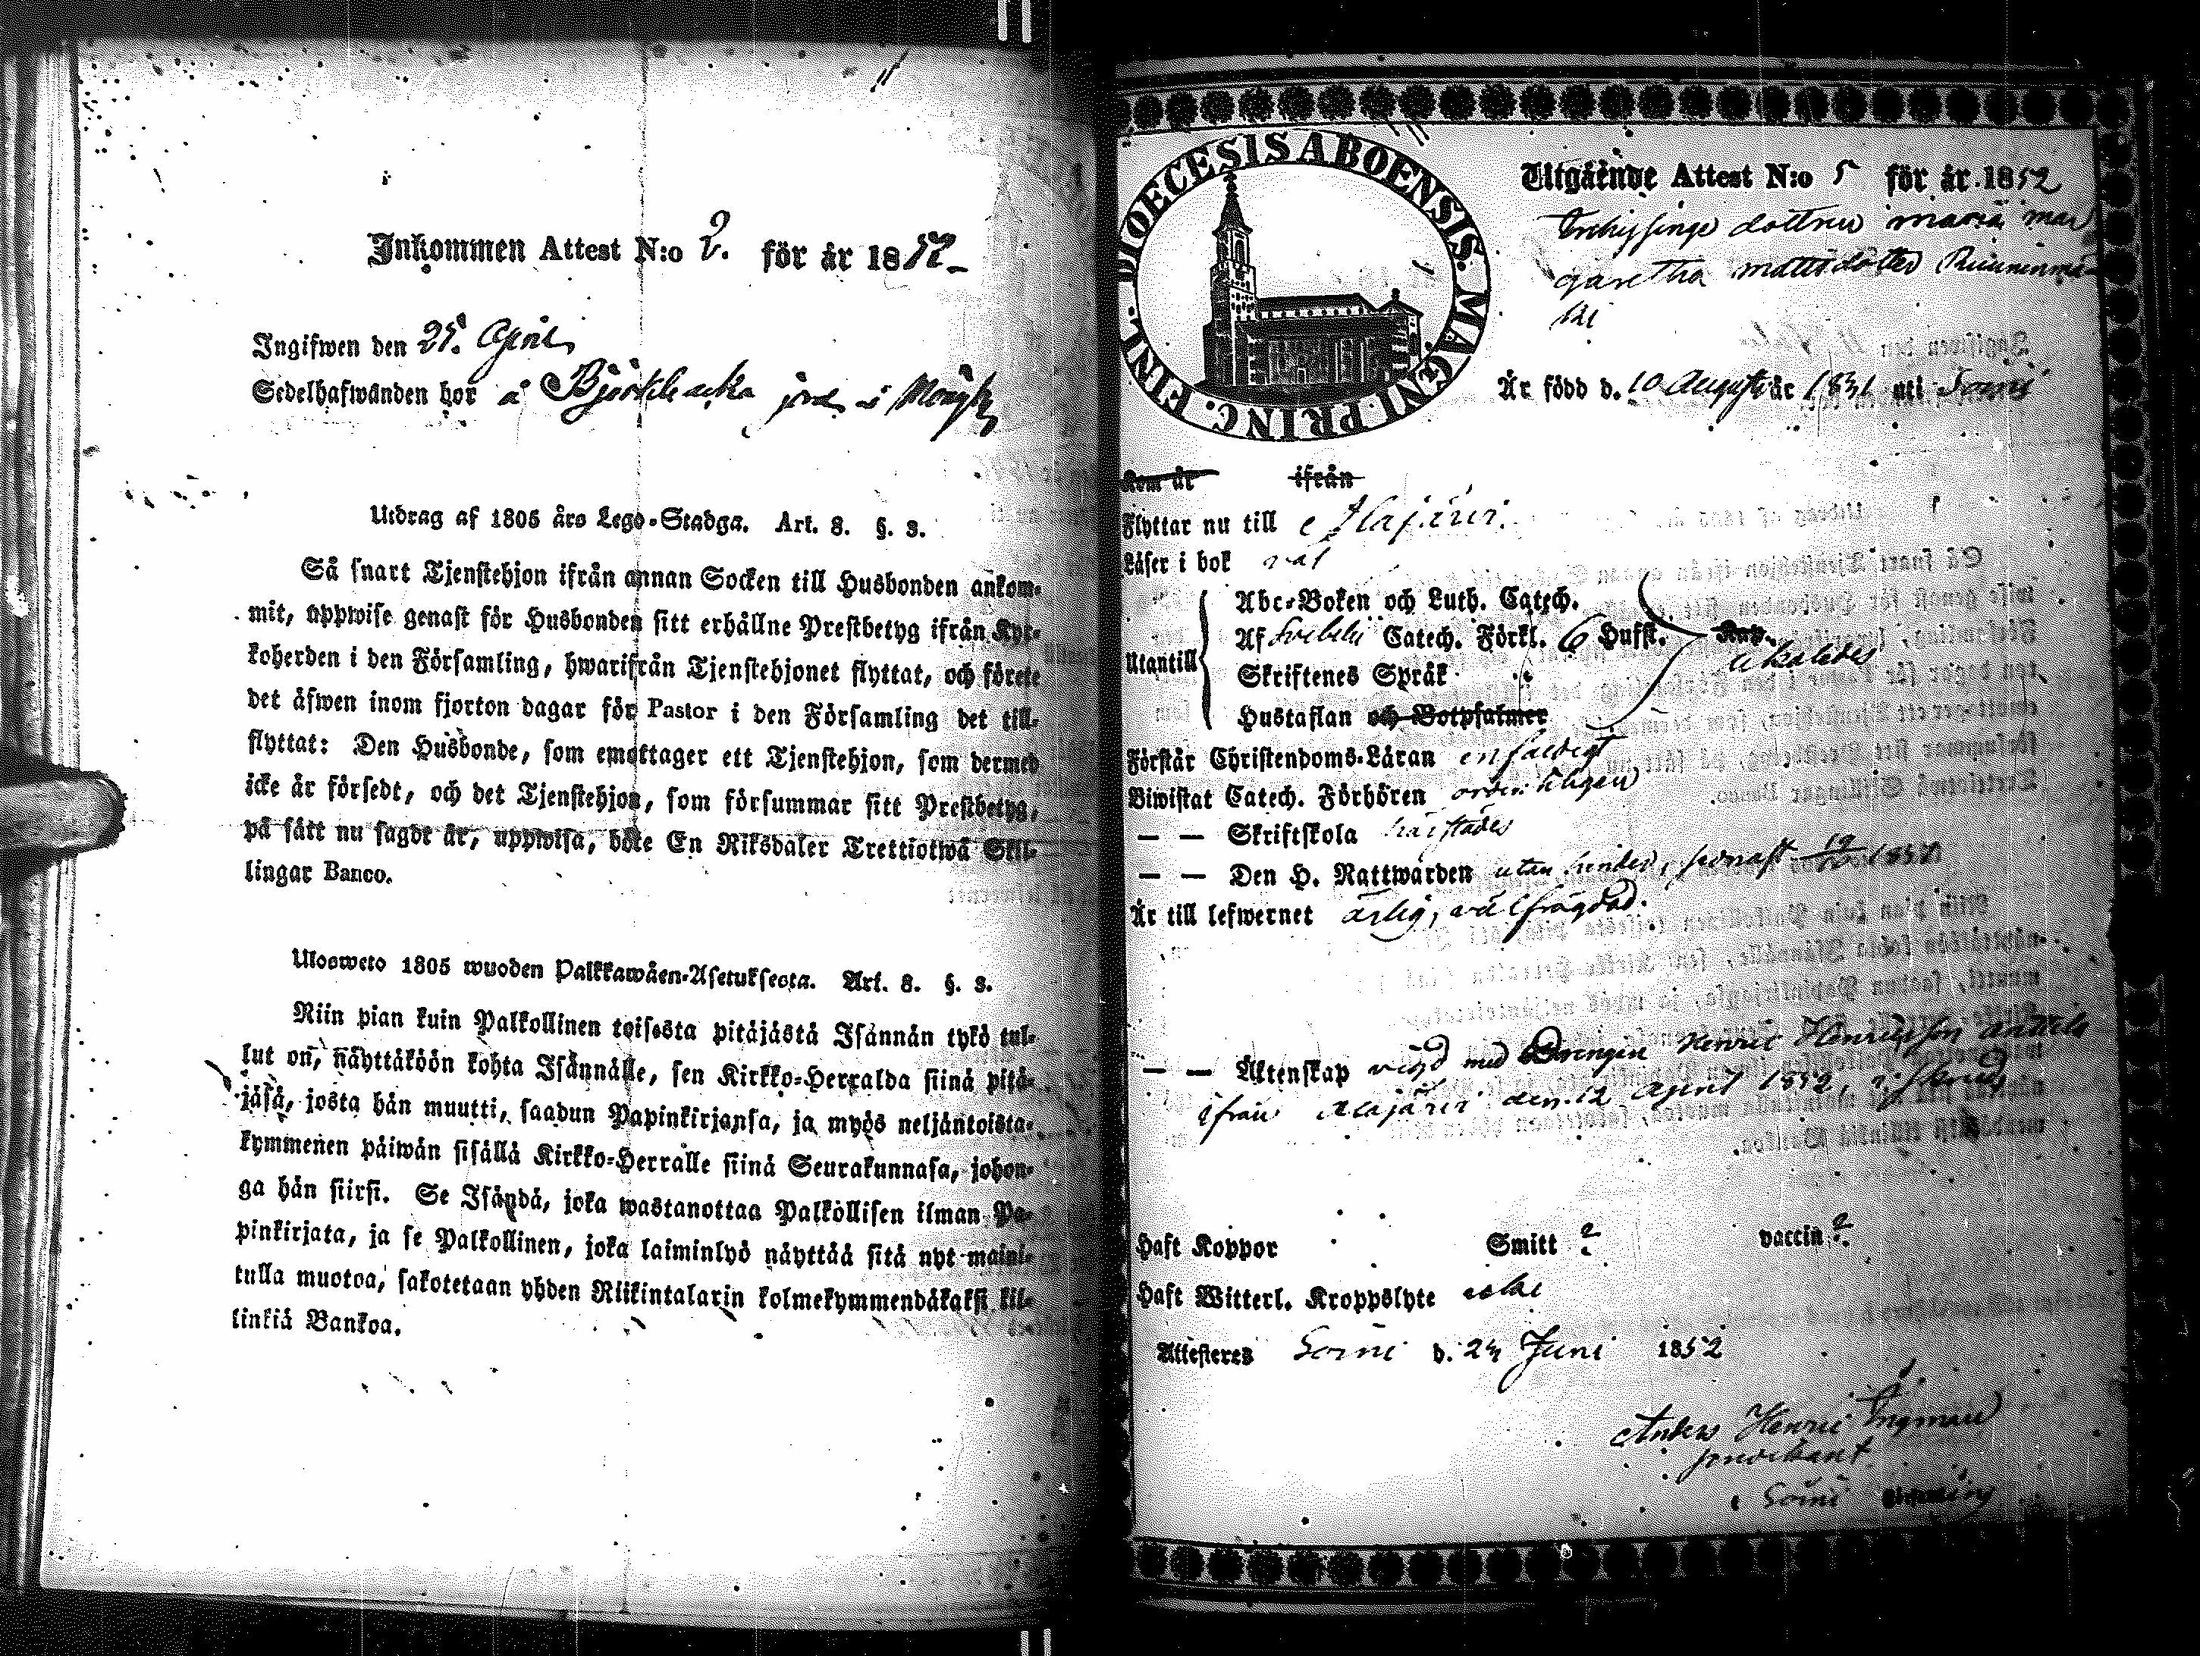 Inkommen Attest N:o 2. för år 1852
Ingifwen den 25. April
Sedelhafwanden bor å jord i
Utdrag af 1805 års Lego-Stadga. Art. 8. §. 3.
Så snart Tjenstehjon ifrån annan Socken till Husbonden ankom-
mit, uppwise genast för Husbonden sitt erhållne Prestbetyg ifrån Kyr-
koherden i den Församling, hwarifrån Tjenstehjonet flyttat, och förete
det äfwen inom fjorton dagar för Pastor i den Församling det till-
flyttat: Den Husbonde, som emottager ett Tjenstehjon, som dermed
icke är försedt, och det Tjenstehjon, som försummar sitt Prestbetyg,
på sätt nu sagdt är, uppwisa, böte En Riksdaler Trettiotwå Skil-
lingar Banco.
Ulosweto 1805 wuoden Palkkawäen-Asetuksesta. Art. 8. §. 3.
Niin pian kuin Palkollinen toisesta pitäjästä Isännän tykö tul-
lut on, näyttäköön kohta Isännälle, sen Kirkko-Herralda siinä pitä-
jäsä, josta hän muutti, saadun Papinkirjansa, ja myös neljäntoista-
kymmenen päiwän sisällä Kirkko-Herralle siinä Seurakunnasa, johon-
ga hän siirsi. Se Isändä, joka wastanottaa Palkollisen ilman Pa-
pinkirjata, ja se Palkollinen, joka laiminlyö näyttää sitä nyt maini-
tulla muotoa, sakotetaan yhden Riikintalarin kolmekymmendäkaksi kil-
linkiä Bankoa.
DIOECESIS ABOENSIS. MAGNI PRINC. FINL.
Utgående Attest N:o 5 för år 1852
dottren maria mar
garetha mattsdotter
ki
Är född d. 10 Augusti år 1831 uti Soini
Kom år ifrån
Flyttar nu till Alajärvi.
Läser i bok väl
Utantill
Abc-Boken och Luth. Catech.
Af Svebelii Catech. Förkl. 6 Hufst.
Skriftenes Språk
Hustaflan och Botpsalmer
Förstår Christendoms-Läran enfaldigt
Biwistat Catech. Förhören ordentligen
— — Skriftskola härstädes
— — Den H. Nattwarden utan hinder, senast
Är till lefwernet ärlig, välfrägdad.
— — Äktenskap vigd med Drengen Henric Henricsson
ifrån Alajärvi den 12 April 1852,
Haft Koppor Smitt ? vaccin ?.
Haft Witterl. Kroppslyte icke
Attesteres Soini d. 24 Juni 1852
Anders Henric Ingman
Soini